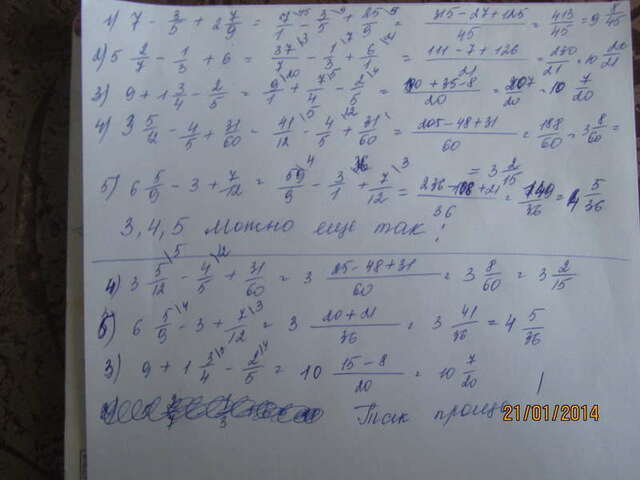 1) 7 - 3/5 + 2 7/9 = 7/1 - 3/5 + 25/9 = (315 - 27 + 125)/45 = 413/45 = 9 8/45
2) 5 2/7 - 1/3 + 6 = 37/7 - 1/3 + 6/1 = (111 - 7 + 126)/21 = 230/21 = 10 20/21
3) 9 + 1 3/4 - 2/5 = 9/1 + 7/4 - 2/5 = (180 + 35 - 8)/20 = 207/20 = 10 7/20
4) 3 5/12 - 4/5 + 31/60 = 41/12 - 4/5 + 31/60 = (205 - 48 + 31)/60 = 188/60 = 3 8/60 =
= 3 2/15
5) 6 5/9 - 3 + 7/12 = 59/9 - 3/1 + 7/12 = (236 - 108 + 21)/36 = 149/36 = 4 5/36
3, 4, 5 можно еще так!
4) 3 5/12 - 4/5 + 31/60 = 3 (25 - 48 + 31)/60 = 3 8/60 = 3 2/15
5) 6 5/9 - 3 + 7/12 = 3 (20 + 21)/36 = 3 41/36 = 4 5/36
3) 9 + 1 3/4 - 2/5 = 10 (15 - 8)/20 = 10 7/20
Так проще!
21/01/2014